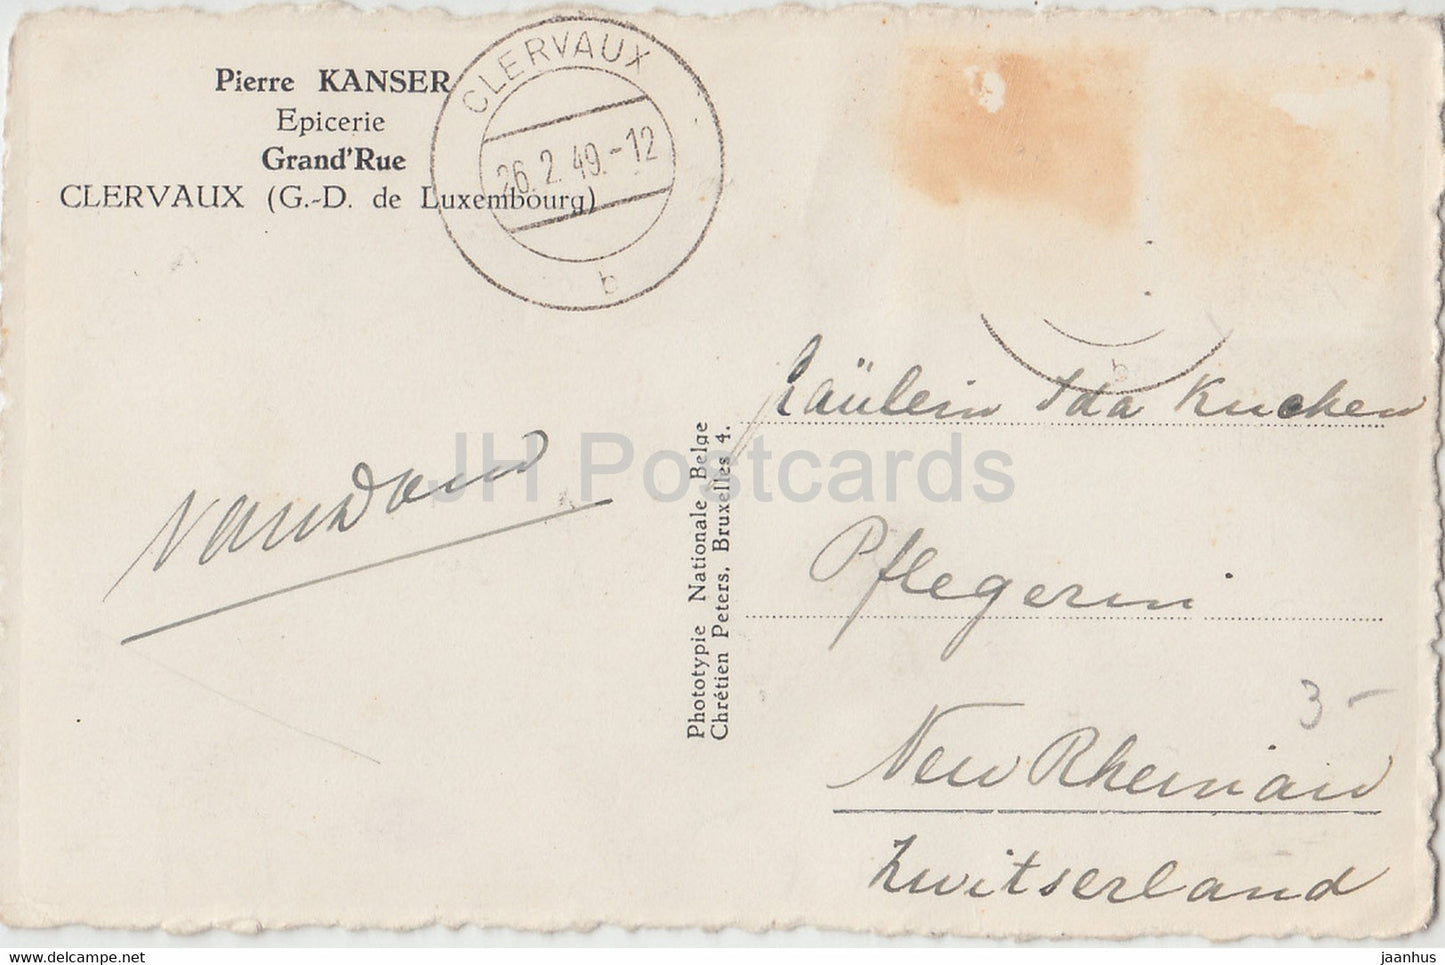 Pierre KANSER
Epicerie
Grand'Rue
CLERVAUX (G.-D. de Luxembourg)
CLERVAUX
26.2.49.-12
b
b
Phototypie Nationale Belge
Chrétien Peters, Bruxelles 4.
Fräulein Ida Kucken
Pflegerin
New Rheinau
Zwitserland
3-
JH Postcards
delcampe.net
jaanhus